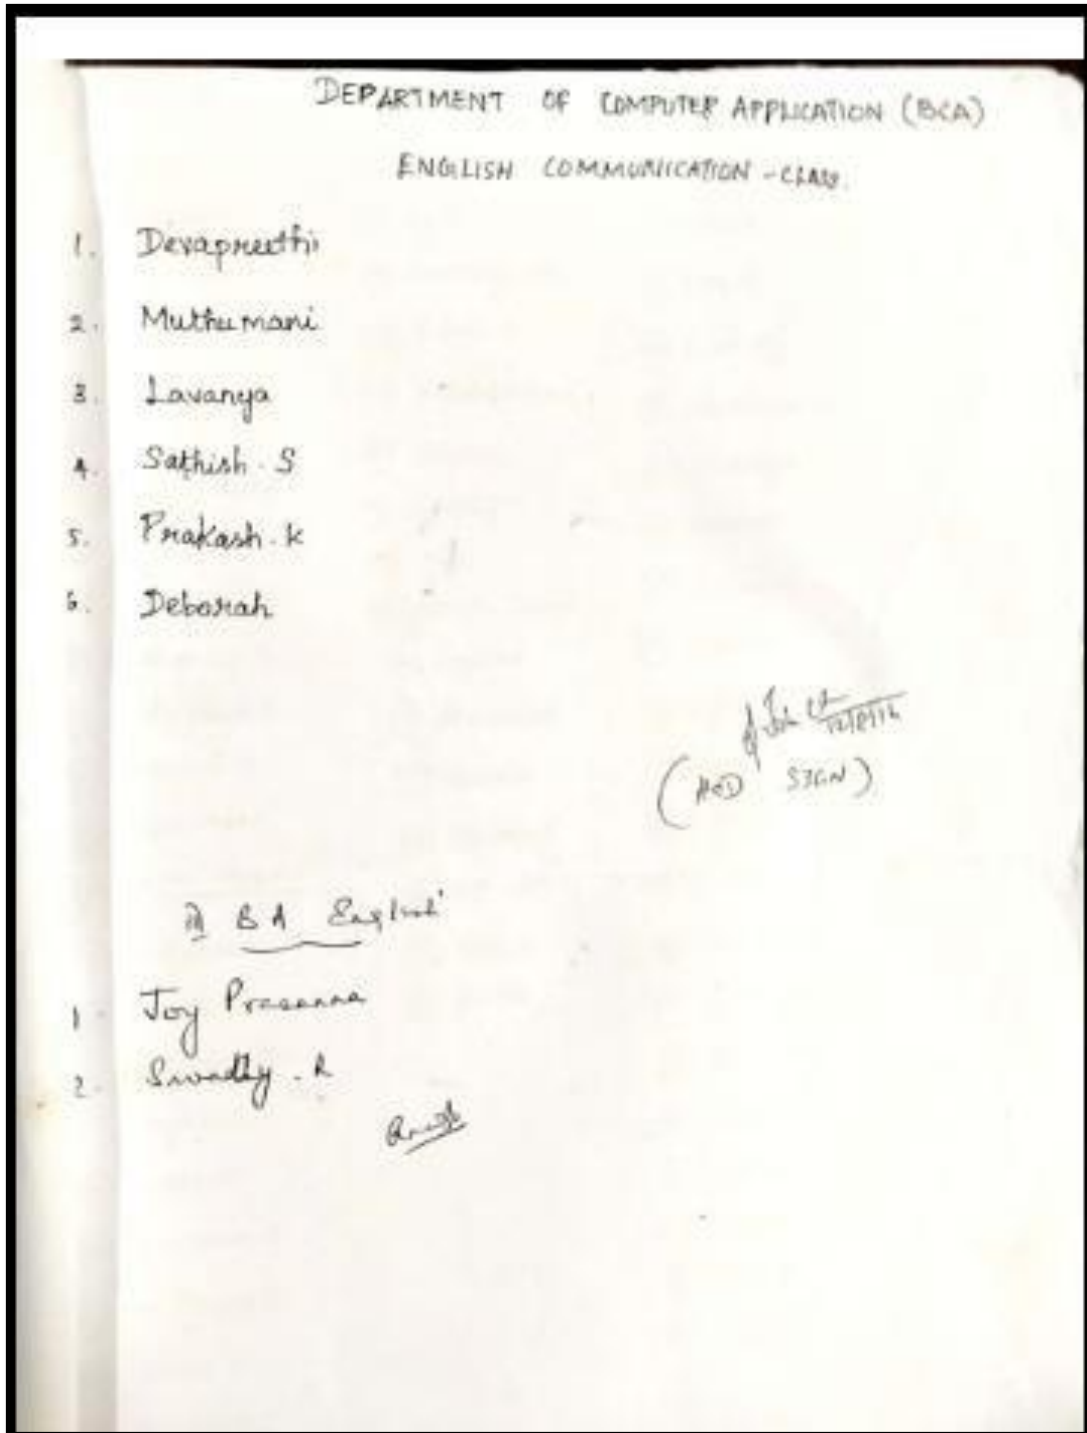 DEPARTMENT OF COMPUTER APPLICATION (BCA)
ENGLISH COMMUNICATION - CLASS.
1. Devapreethi
2. Muthumani
3. Lavanya
4. Sathish. S
5. Prakash. K
6. Deborah
(HOD SIGN)
III BA English
1. Joy Prasanna
2. R